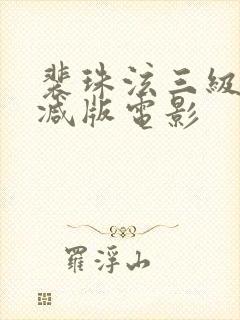 裴珠泫三級
减版電影
羅浮山